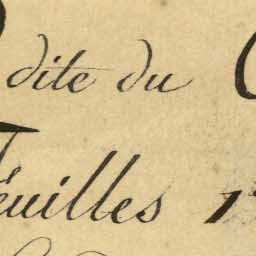 dite du
euilles 1